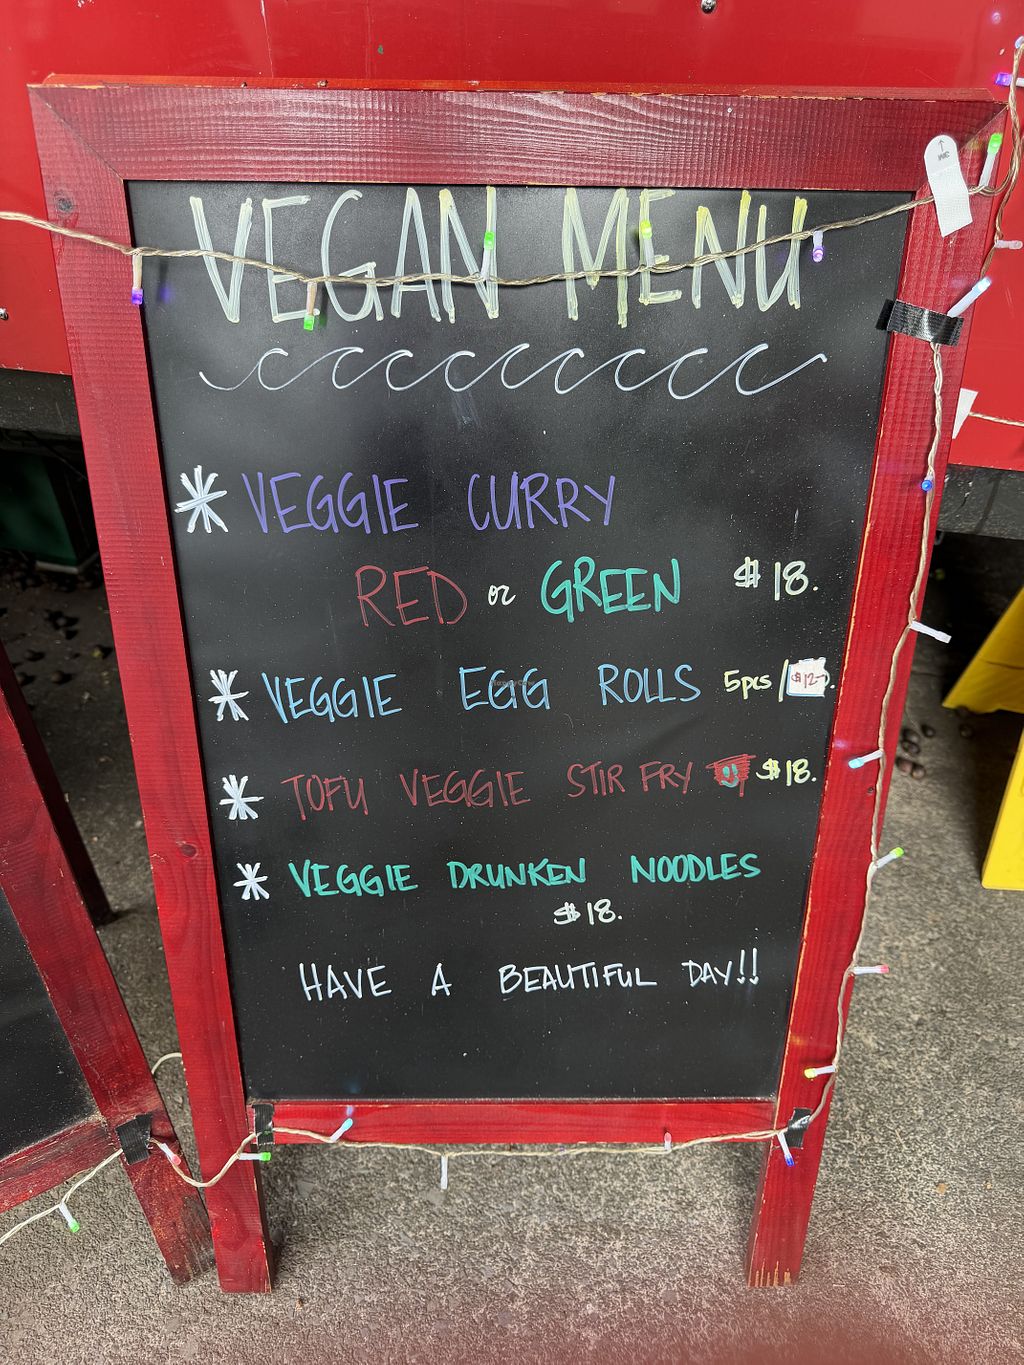 VEGAN MENU
VEGGIE CURRY
RED or GREEN $18.
VEGGIE EGG ROLLS 5pcs / $12.
TOFU VEGGIE STIR FRY $18.
VEGGIE DRUNKEN NOODLES
$18.
HAVE A BEAUTIFUL DAY!!